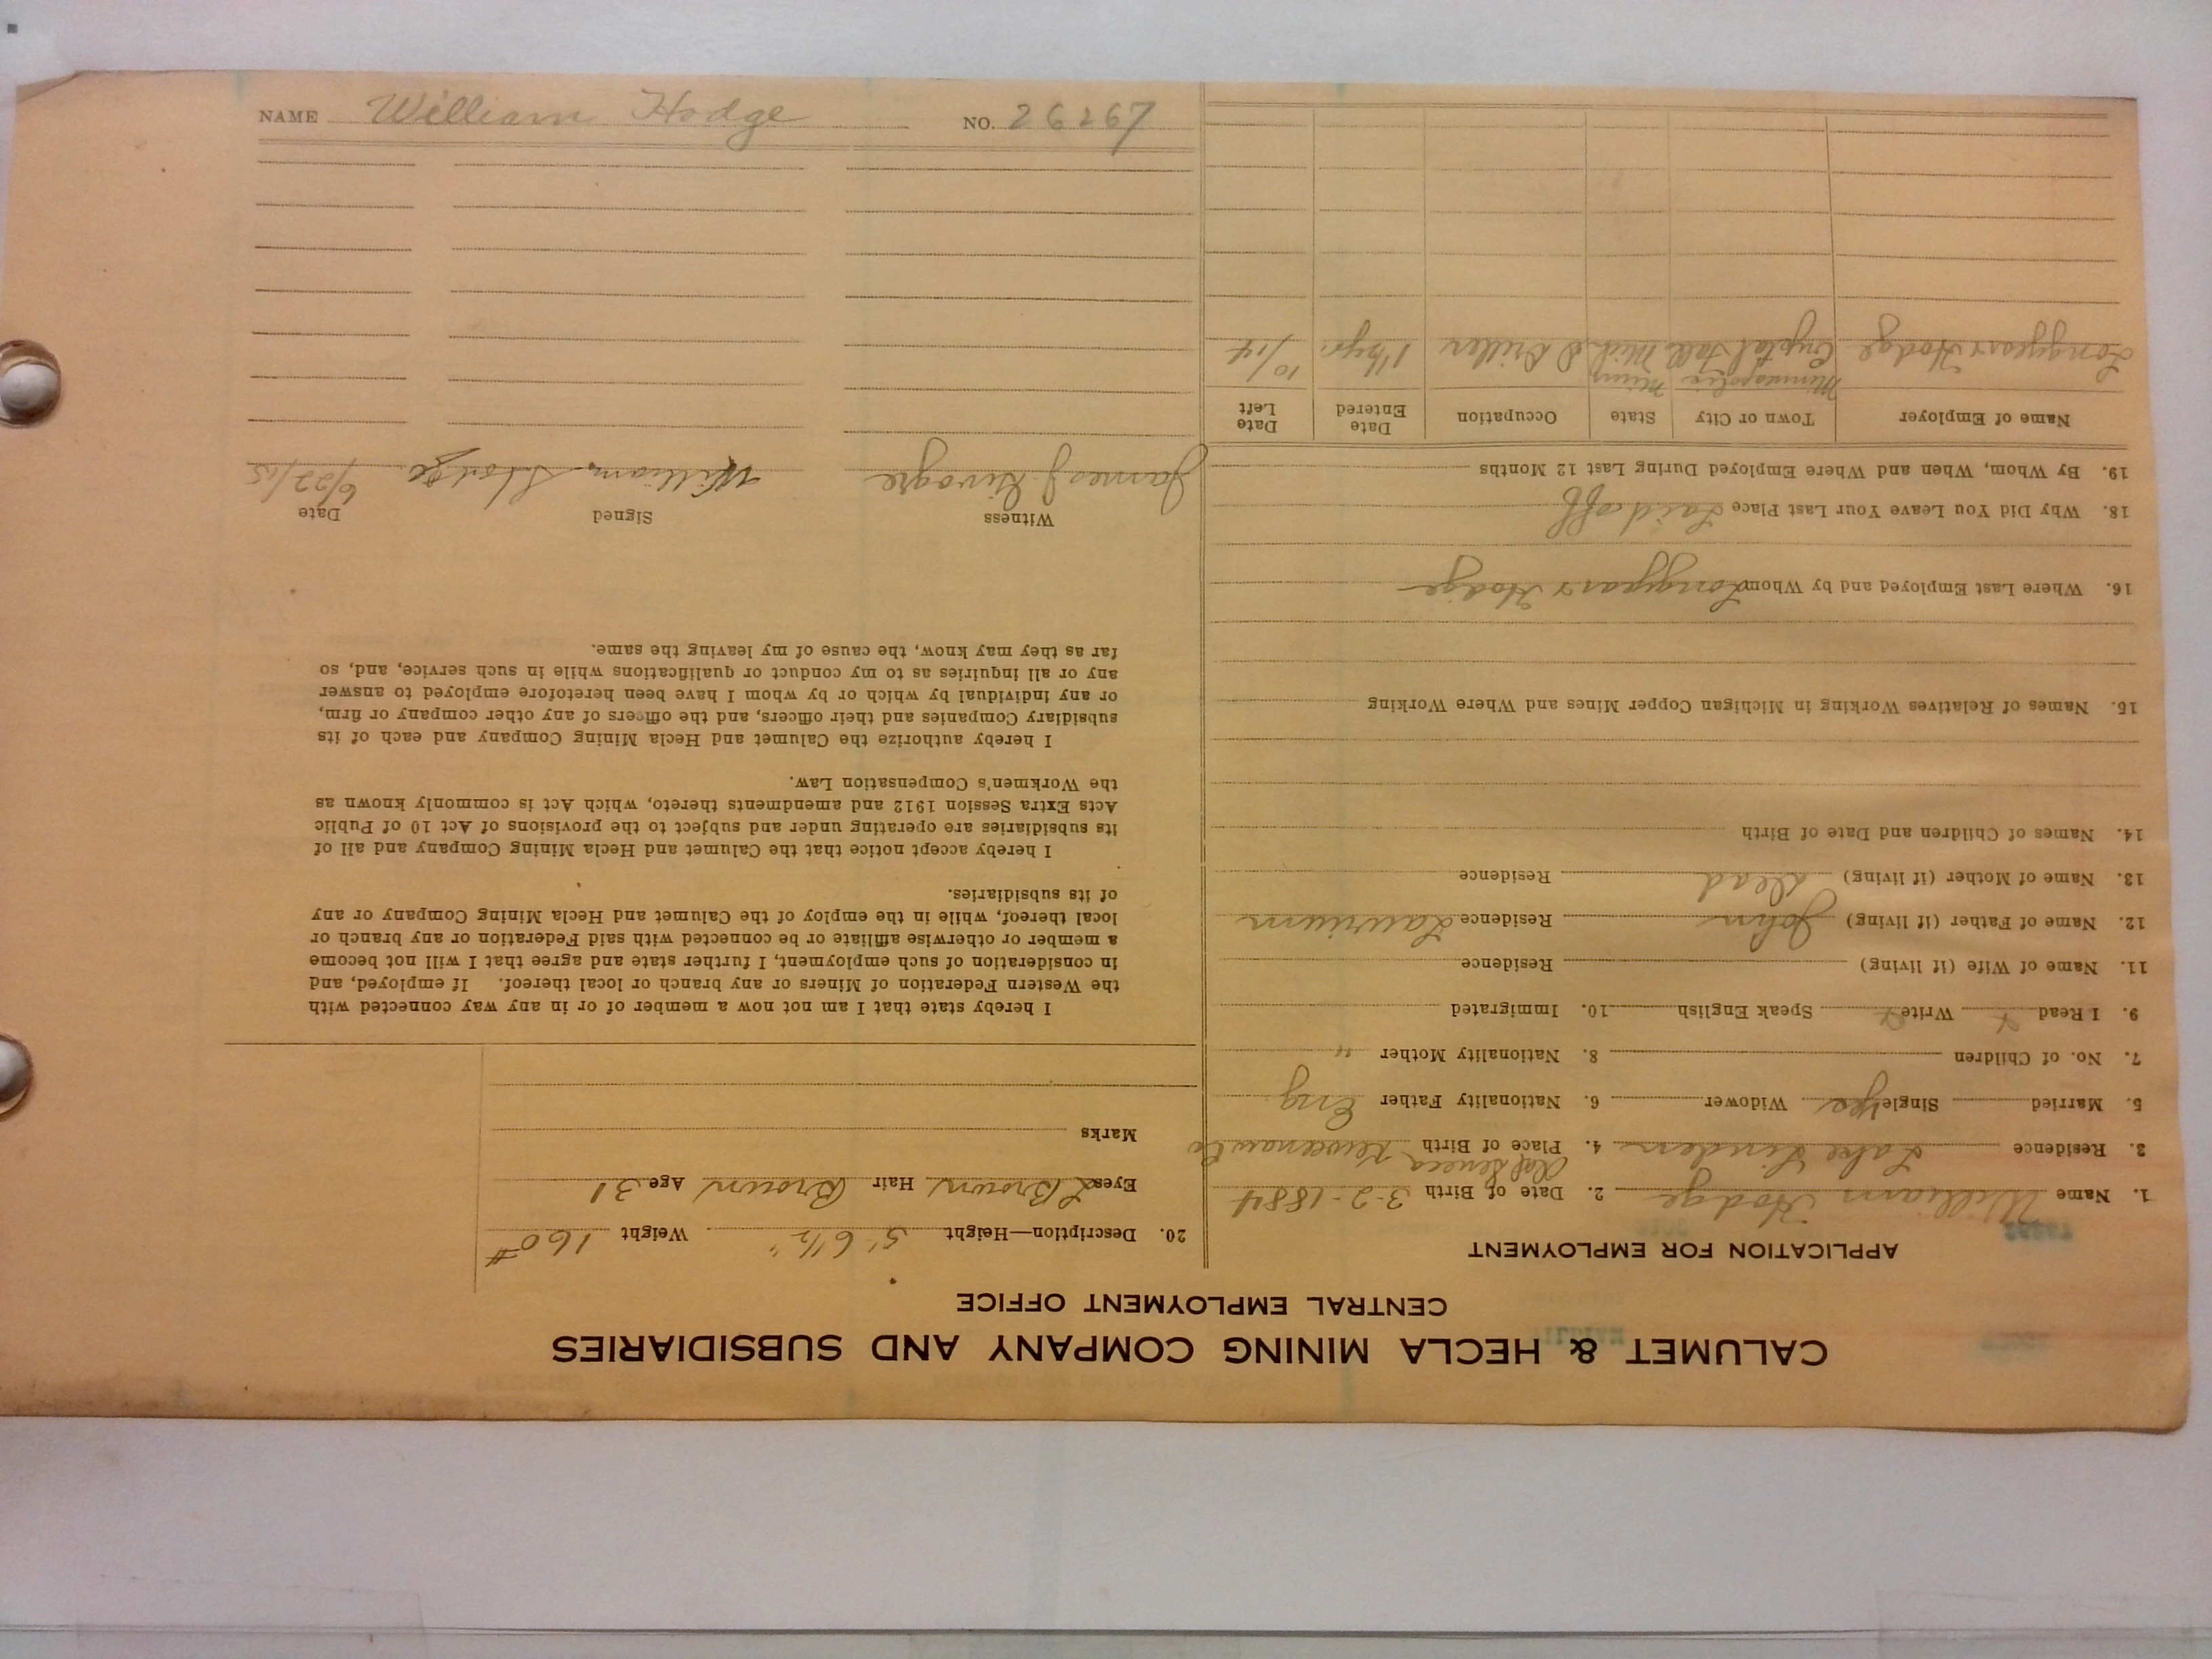 CALUMET & HECLA MINING COMPANY AND SUBSIDIARIES
CENTRAL EMPLOYMENT OFFICE
APPLICATION FOR EMPLOYMENT
1. Name William Hodge 2. Date of Birth 3-2-1884
3. Residence Lake Linden 4. Place of Birth Old Seneca Keweenaw Co
5. Married Single Yes Widower 6. Nationality Father Eng
7. No. of Children 8. Nationality Mother "
9. I Read Write Speak English 10. Immigrated
11. Name of Wife (if living) Residence
12. Name of Father (if living) John Residence Laurium
13. Name of Mother (if living) Dead Residence
14. Names of Children and Date of Birth
15. Names of Relatives Working in Michigan Copper Mines and Where Working
16. Where Last Employed and by Whom Longyear & Hodge
18. Why Did You Leave Your Last Place Laid off
19. By Whom, When and Where Employed During Last 12 Months
Name of Employer Town or City State Occupation Date Entered Date Left
Minneapolis Minn
Longyear & Hodge Crystal Fall Mich D Driller 1½ yr. 10/14
20. Description—Height 5' 6½" Weight 160#
Eyes L Brown Hair Brown Age 31
Marks
I hereby state that I am not now a member of or in any way connected with
the Western Federation of Miners or any branch or local thereof. If employed, and
in consideration of such employment, I further state and agree that I will not become
a member or otherwise affiliate or be connected with said Federation or any branch or
local thereof, while in the employ of the Calumet and Hecla Mining Company or any
of its subsidiaries.
I hereby accept notice that the Calumet and Hecla Mining Company and all of
its subsidiaries are operating under and subject to the provisions of Act 10 of Public
Acts Extra Session 1912 and amendments thereto, which Act is commonly known as
the Workmen's Compensation Law.
I hereby authorize the Calumet and Hecla Mining Company and each of its
subsidiary Companies and their officers, and the officers of any other company or firm,
or any individual by which or by whom I have been heretofore employed to answer
any or all inquiries as to my conduct or qualifications while in such service, and, so
far as they may know, the cause of my leaving the same.
Witness Signed Date
James J. William Hodge 6/22/15
NAME William Hodge NO. 26267